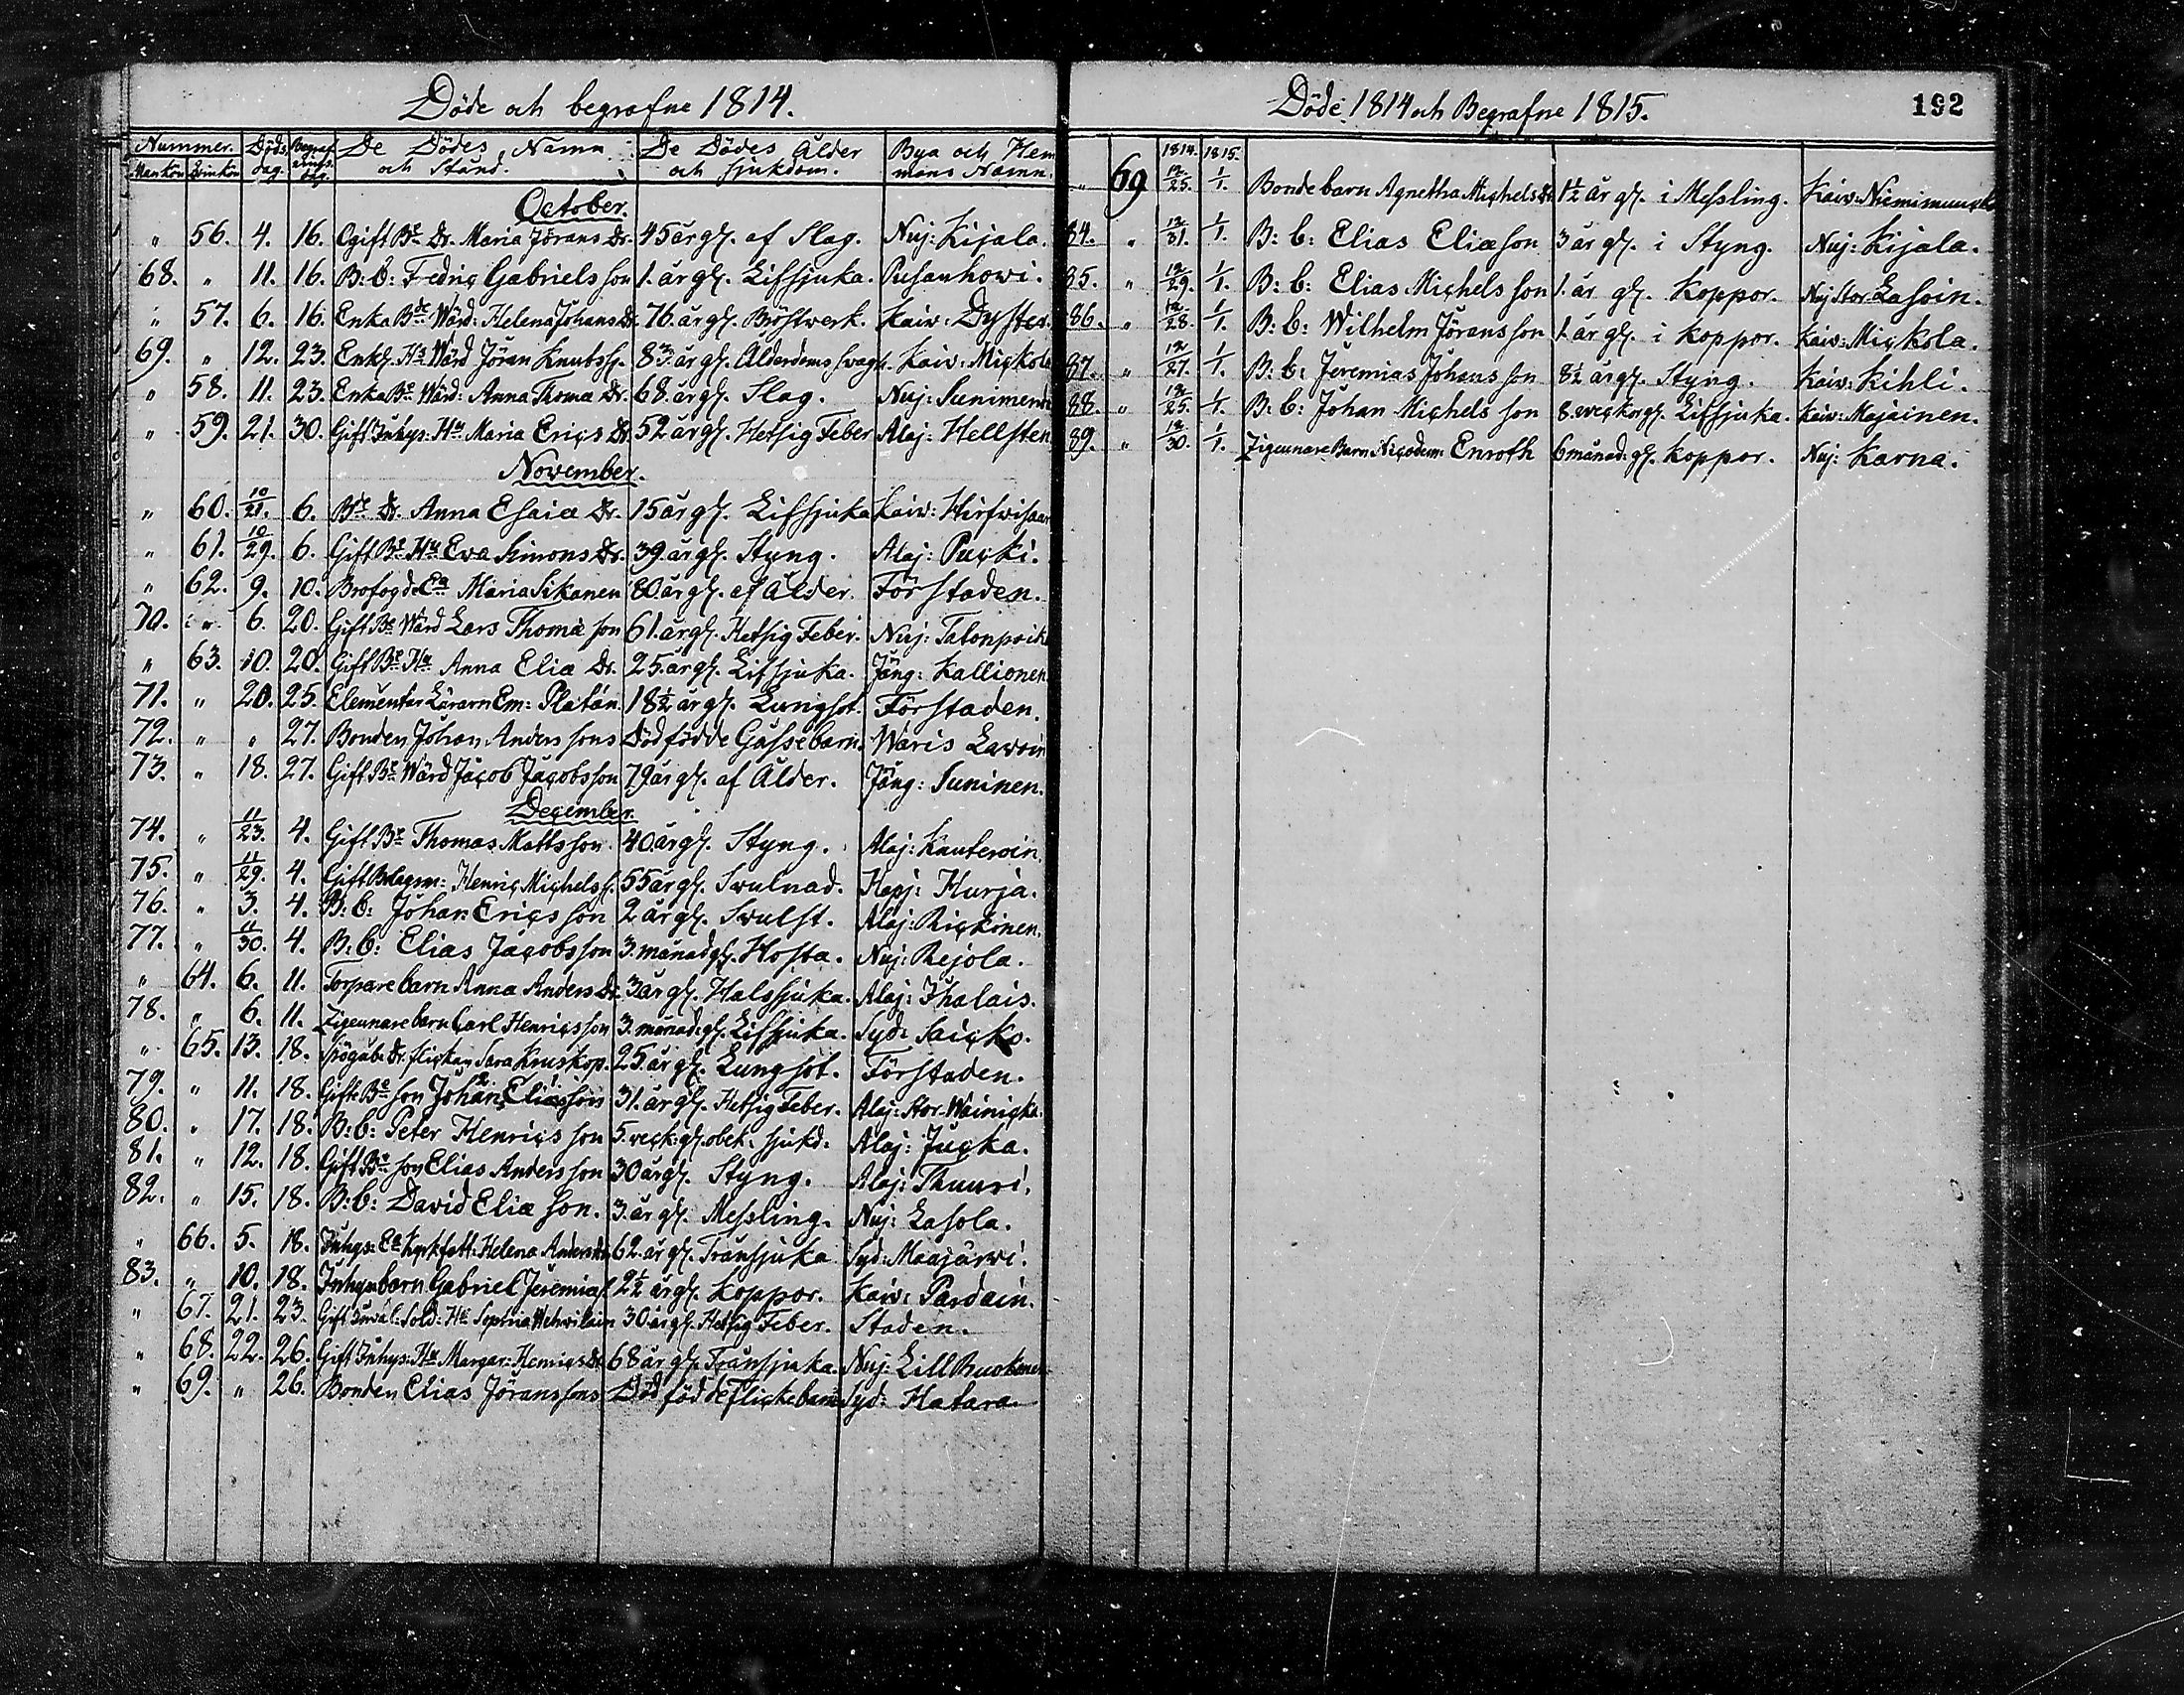 Döde och begrafne 1814.
Nummer. Döds dag. Begrafnings dag. De Dödes Namn och Stånd. De Dödes Ålder och sjukdom. Bya och Hemmans Namn.
Mankön Qvinkön
October.
" 56. 4. 16. Ogift Bde Dr. Maria Jörans Dr. 45 år gl. af Slag. Nuj: Kijala.
68. " 11. 16. B: b: Fedric Gabriels son 1. år gl. Lifsjuka. Pusanhowi.
" 57. 6. 16. Enka Bde Wärd: Helena Johans Dr. 76. år gl. Bröstwerk. Kaiw: Dyster.
69. " 12. 23. Enkl. Hs Wärd Jöran Knutss. 83. år gl. Ålderdoms swagh. Kaiw: Mickola
" 58. 11. 23. Enka Be Wärd: Anna Thomæ Dr. 68. år gl. Slag. Nuj: Sunimendi
" 59. 21. 30. Gift Inhys: Hu Maria Erics Dr. 52 år gl. Hetsig Feber Alaj: Hellsten
November.
" 60. 10/21. 6. Bde Dr. Anna Esaiæ Dr. 15 år gl. Lifsjuka Kaiw: Hirfwisaari
" 61. 10/29. 6. Gift Be Hu Eva Simons Dr. 39. år gl. Styng. Alaj: Pucki.
" 62. 9. 10. Brofogd. Ea Maria Sikanen 80 år gl. af Ålder. Förstaden.
70. " 6. 20. Gift Be Wärd Lars Thomæ son 61. år gl. Hetsig Feber. Nuj: Talonpoik
" 63. 10. 20. Gift Be Hu Anna Eliæ Dr. 25. år gl. Lifsjuka. Jäng: Kallionen
71. " 20. 25. Elementar Lärarn Em: Platán. 18½ år gl. Lungsot. Förstaden.
72. " " 27. Bonden Johan Anders sons Dödfödde Gåssebarn. Waris Lawoin
73. " 18. 27. Gift Be Wärd Jacob Jacobsson 79 år gl. af Ålder. Jäng: Suninen.
December.
74. " 11/23. 4. Gift Be Thomas Matts son. 40. år gl. Styng. Alaj: Kauteroin.
75. " 11/29. 4. Gift Bolagsm: Henric Michels s. 55 år gl. Swulnad. Hapj: Hurja.
76. " 3. 4. B: b: Johan Erics son 2 år gl. Swulst. Alaj: Rickinen.
77. " 11/30. 4. B: b: Elias Jacobsson 3. månad gl. Hosta. Nuj: Rejola.
" 64. 6. 11. Torpare barn Anna Anders Dr. 3 år gl. Halssjuka. Alaj: Ihalais.
78. " 6. 11. Zigeunare barn Carl Henrics son 3. månad. gl. Lifsjuka. Syd: Saicko.
" 65. 13. 18. flickan Sara Kruskop. 25. år gl. Lungsot. Förstaden.
79. " 11. 18. Gifte Be son Johan Eliæ son 31. år gl. Hetsig Feber. Alaj: Stor-Wainicka.
80. " 17. 18. B: b: Peter Henrics son 5. veck: gl. obek. sjukd. Alaj: Jucka.
81. " 12. 18. Gift Be son Elias Anders son 30 år gl. Styng. Alaj: Thuuri.
82. " 15. 18. B: b: David Eliæ son. 3. år gl. Messling. Nuj: Lasola.
" 66. 5. 18. Inhys: Ea Kyrkfatt: Helena Anders Dr. 62. år gl. Trånsjuka Syd: Maajärwi.
83. " 10. 18. Inhys barn Gabriel Jeremiæ s. 2½ år gl. Koppor. Kaiw: Pardain.
" 67. 21. 23. Gift Inval: Sold: Hu Sophia Wehwiläin 30. år gl. Hetsig Feber. Staden.
" 68. 22. 26. Gift Inhys: Hu Margar: Henrics Dr. 68 år gl. Trånsjuka. Nuj: Lill Buokonen
" 69. " 26. Bonden Elias Jöranssons Död född Flickebarn Syd: Hatara
Döde 1814 och Begrafne 1815.
192
1814. 1815.
" 69 12/25. 1/1. Bonde barn Agnetha Michels Dr. 1½ år gl. i Messling. Kaiw: Niemismuncko
84. " 12/31. 1/1. B: b: Elias Eliæ son 3 år gl. i Styng. Nuj: Kijala.
85. " 12/29. 1/1. B: b: Elias Michels son 1. år gl. Koppor. Nuj Stor Lasoin.
86. " 12/28. 1/1. B: b: Wilhelm Jörans son 1. år gl. i koppor. Kaiw: Mickola.
87. " 12/27. 1/1. B: b: Jeremias Johans son 8½ år gl. Styng. Kaiw: Kihli.
88. " 12/25. 1/1. B: b: Johan Michels son 8. weckor gl. Lifsjuka. Kaiw: Majainen.
89. " 12/30. 1/1. Zigeunare Barn Nicodem: Enroth 6 månad: gl. koppor. Nuj: Karna.